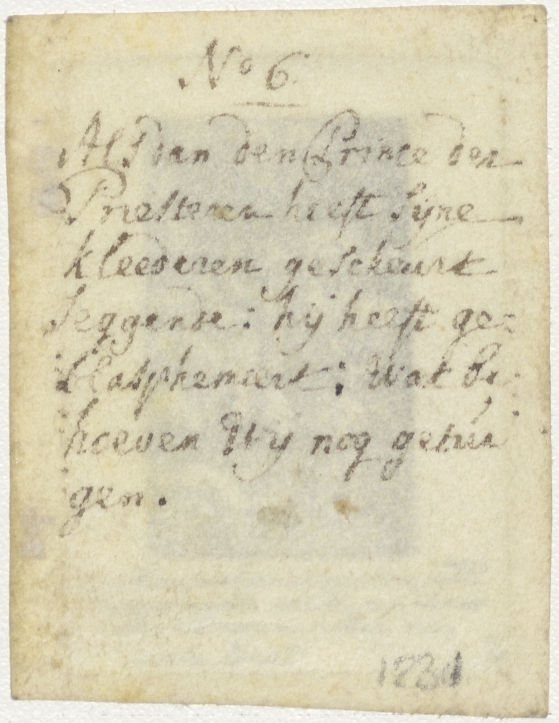 No 6.
Alsdan den Prince der
Priesteren heeft syne
kleederen gescheurt
seggende: hij heeft ge=
blasphemeert; wat be
hoeven wy nog getui
gen.